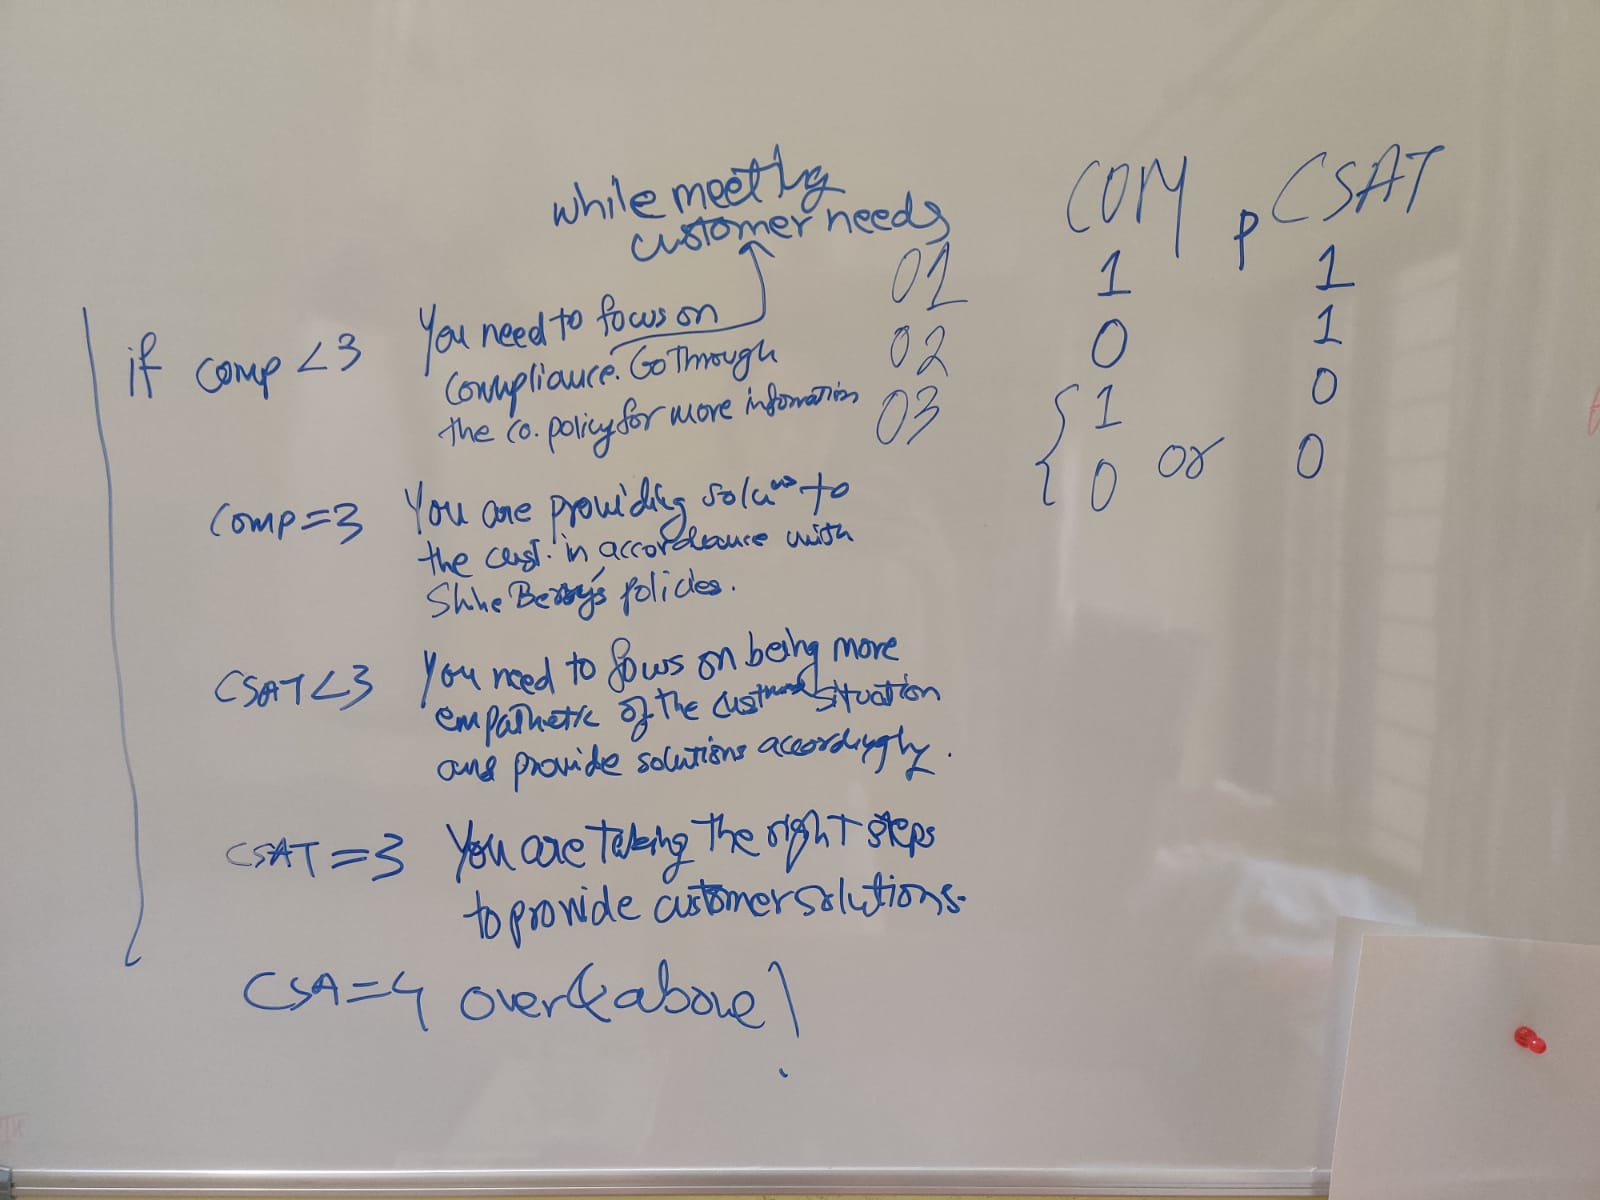 while meeting
customer needs
COM P CSAT
01 1 1
02 0 1
03 { 1 0
0 or 0
if comp <3 You need to focus on
compliance. Go Through
the co. policy for more information
Comp=3 You are providing solu^ns to
the cust. in accordance with
Shhe Berry's policies.
CSAT<3 You need to focus on being more
empathetic of the situation
and provide solutions accordingly.
CSAT=3 You are Taking The right steps
to provide customer solutions.
CSA=4 over & above!